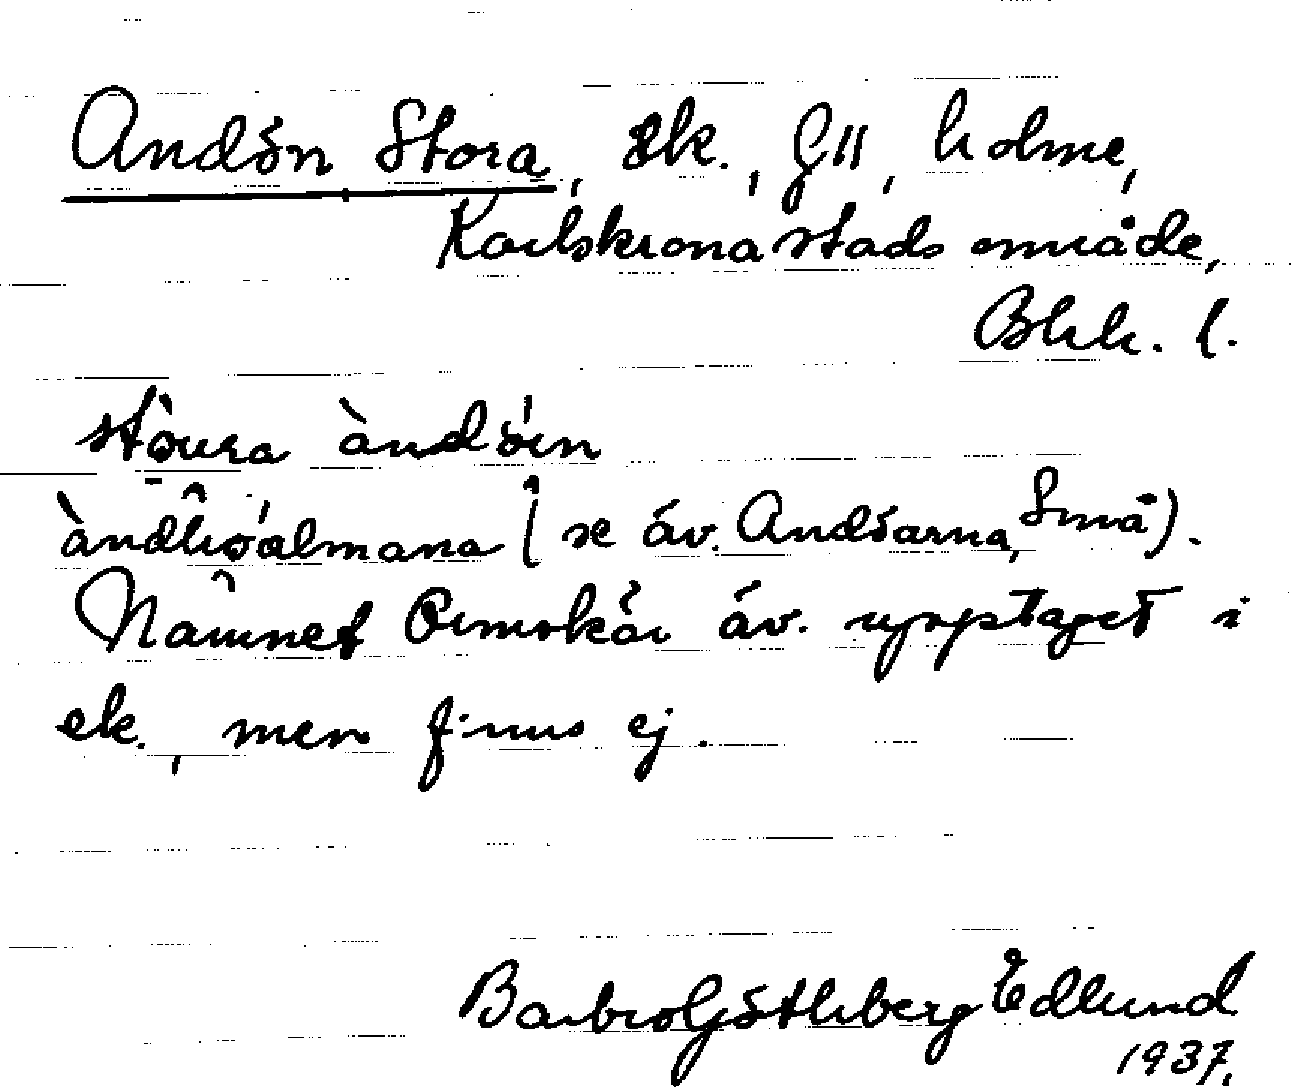 Andön Stora, Ek., G11, holme,
Karlskrona stads område,
Blek. l.
stòura àndöin
àndhóalmana (se äv. Andöarna, Små).
Namnet Ormskär äv. upptaget i
ek., men finns ej.
Barbro Götlberg Edlund
1937.